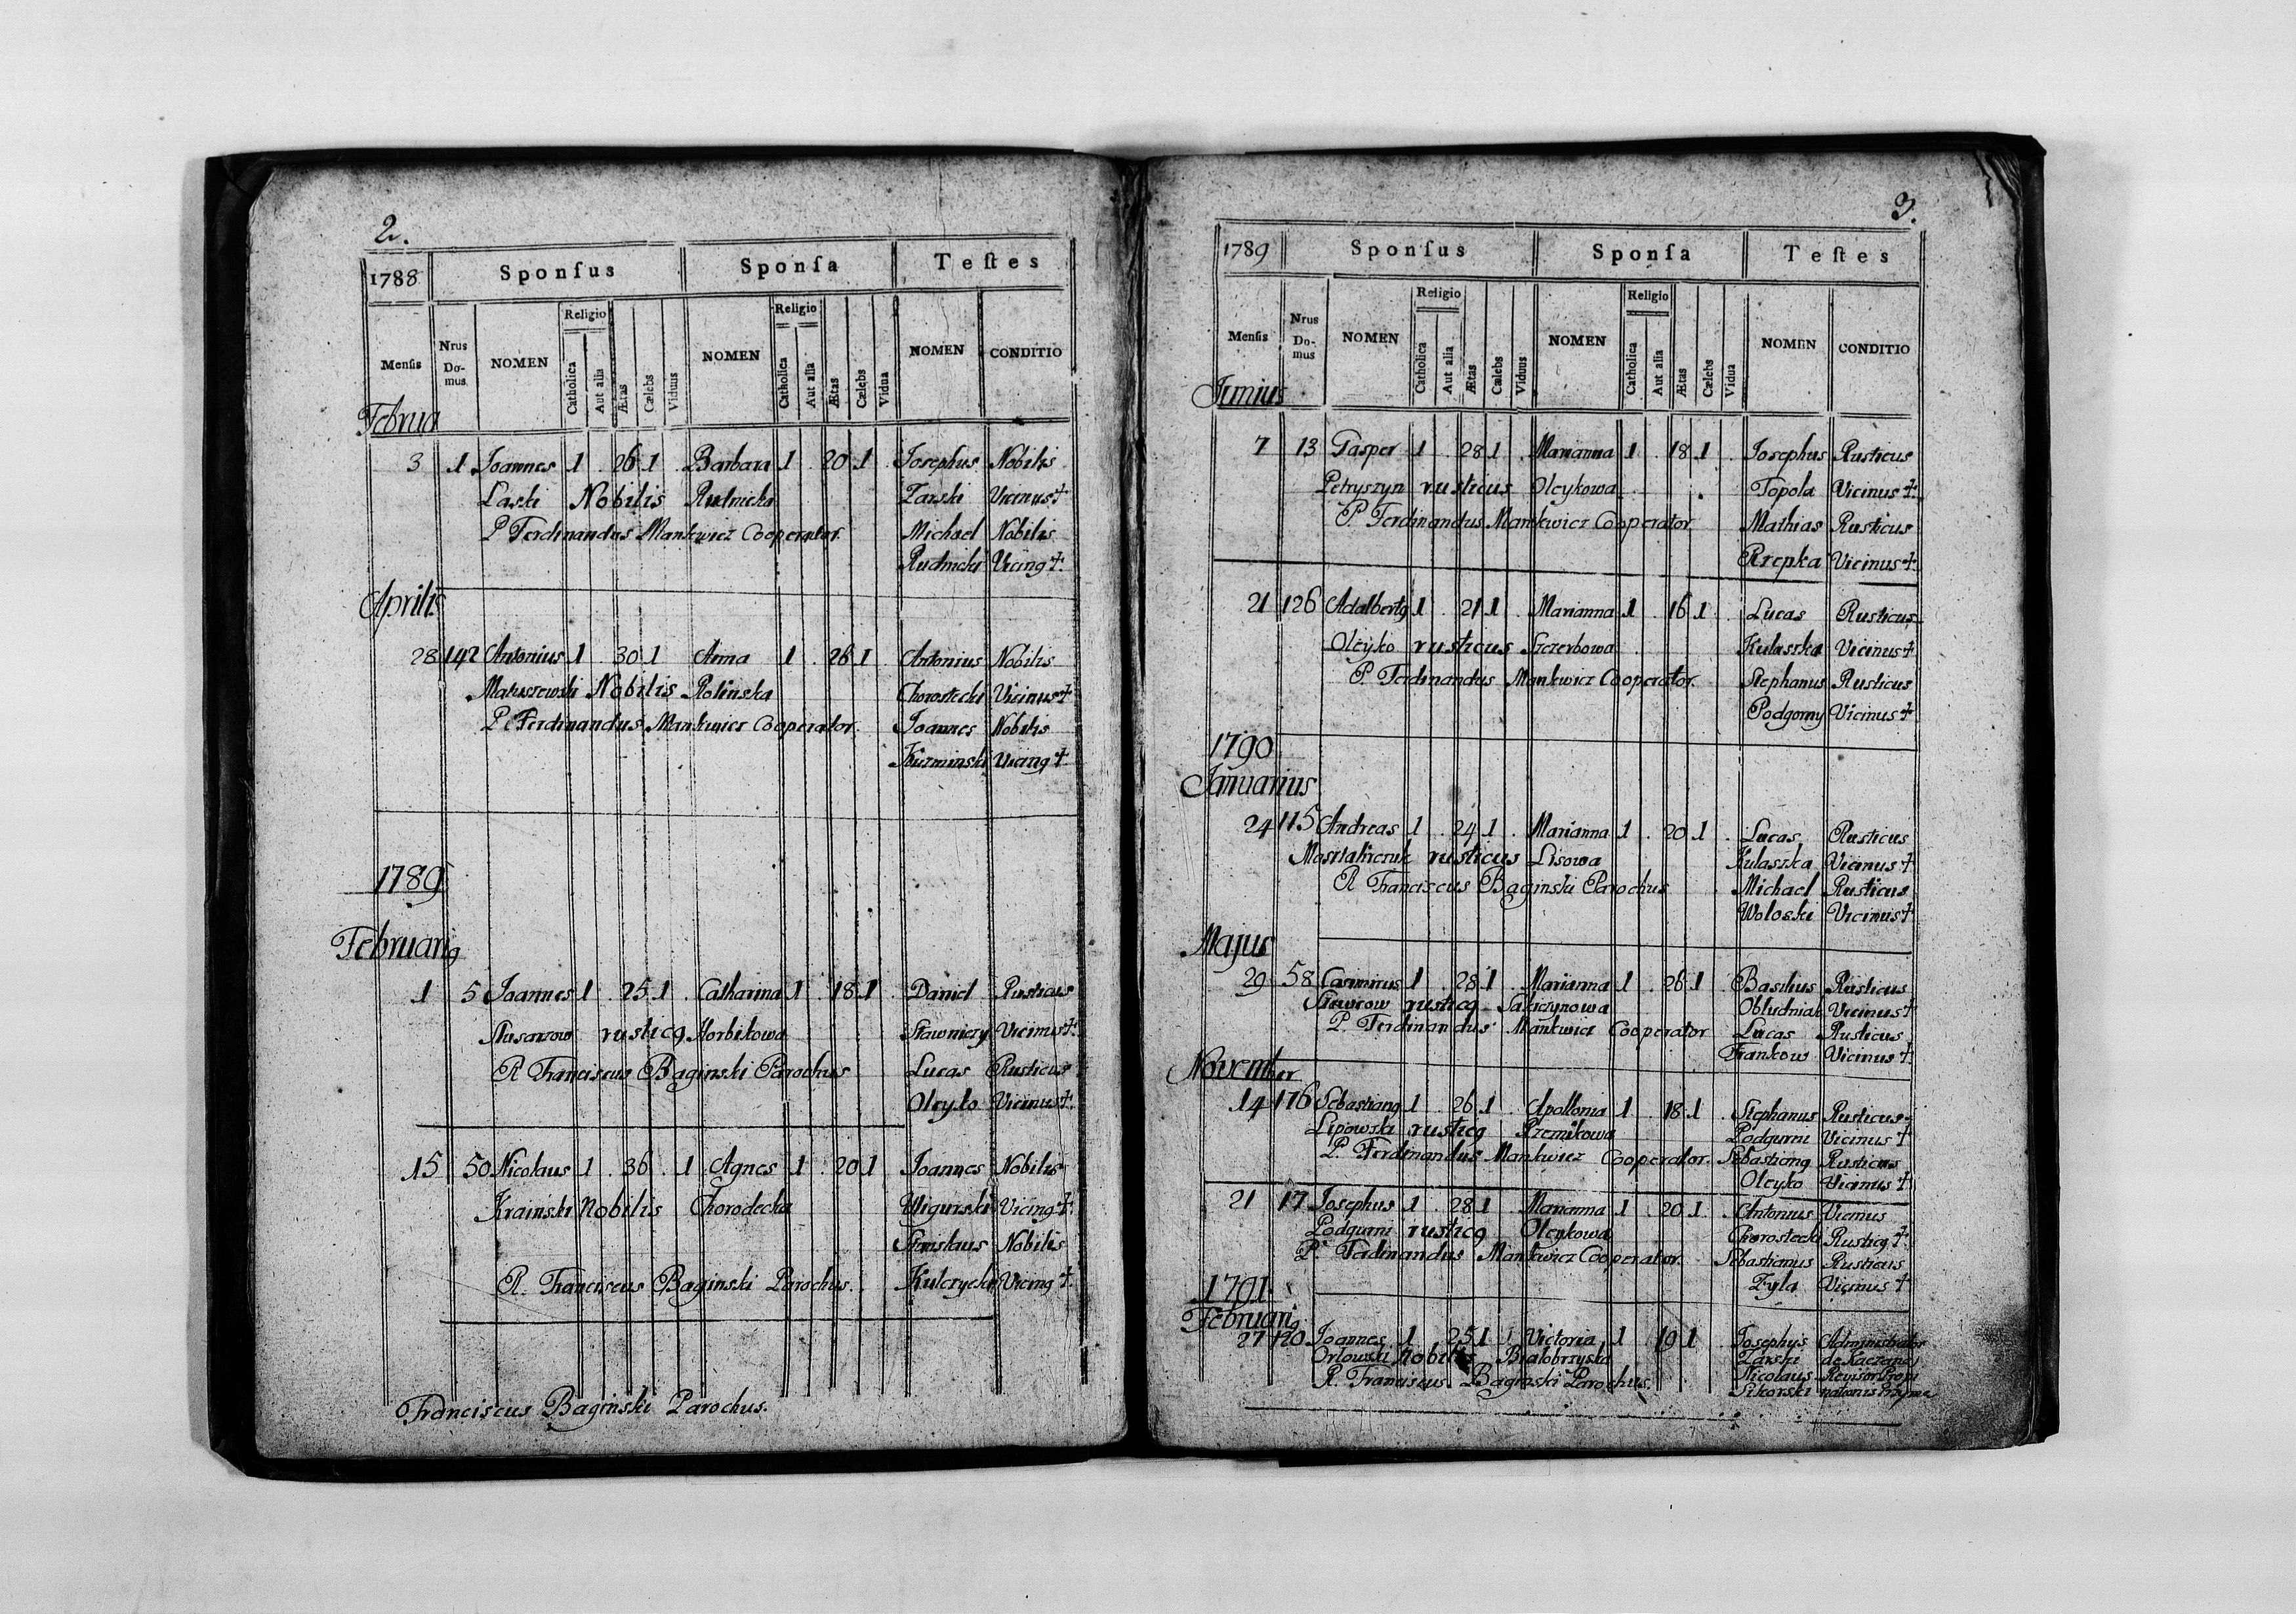 2.
1788 Sponſus Sponſa Teſtes
Menſis Nrus Do-mus. NOMEN Religio Catholica Aut alia Ætas Cælebs Viduus NOMEN Religio Catholica Aut alia Ætas Cælebs Vidua NOMEN CONDITIO
Februa
3 1 Joannes 1 . 26 1 . Barbara 1 . 20 1 Josephus Nobilis
Laski Nobilis Rudnicka Zarski Vicinus +
P Ferdinandus Mankwicz Cooperator. Michael Nobilis
Rudnicki Vicing +.
Aprilis
28 142 Antonius 1 . 30 1 Anna 1 . 26 1 Antonius Nobilis
Matuszewski Nobilis Rolinska Chorostecki Vicinus +
P Ferdinandus Mankwicz Cooperator. Joannes Nobilis
Kuzminski Vicing +
1789
Februarig
1 5 Joannes 1 . 25 1 . Catharina 1 . 18 1 . Daniel Rusticus
Slusarzow rusticg Horbikowa Stawniczy Vicinus +.
R Franciscus Baginski Parochus Lucas Rusticus
Olcyko Vicinus +.
15 50 Nicolaus 1 . 36 . 1 Agnes 1 . 20 1 Joannes Nobilis
Krainski Nobilis Chorodecka Wigurski Vicing +.
Stanslaus Nobilis
R. Franciscus Baginski Parochus. Kulczycki Vicing +.
Franciscus Baginski Parochus.
3.
1789 Sponſus Sponſa Teſtes
Menſis Nrus Do-mus NOMEN Religio Catholica Aut alia Ætas Cælebs Viduus NOMEN Religio Catholica Aut alia Ætas Cælebs Vidua NOMEN CONDITIO
Junius
7 13 Gasper 1 . 28 1 . Marianna 1 . 18 1 . Josephus Rusticus
Petryszyn rusticus Olcykowa Topola Vicinus +.
P. Ferdinandus Mankwicz Cooperator Mathias Rusticus
Rzepka Vicinus +.
21 126 Adalbertg 1 . 21 1 . Marianna 1 . 16 1 . Lucas Rusticus
Olcyko rusticus Szczerbowa Kulaszka Vicinus +
P. Ferdinandus Mankwicz Cooperator. Stephanus Rusticus
Podgorny Vicinus +
1790
Januarius
24 115 Andreas 1 . 24 1 . Marianna 1 . 20 1 . Lucas Rusticus
rusticus Lisowa Kulaszka Vicinus +
R Franciscus Baginski Parochus Michael Rusticus
Woloski Vicinus +
Majus
29 58 Casimirus 1 . 28 1 . Marianna 1 . 26 1 . Basilius Rusticus
rusticg Obludniak Vicinus +
P. Ferdinandus Mankwicz Cooperator Lucas Rusticus
Frankow Vicinus +.
November
14 176 Sebastiang 1 . 26 1 . Apollonia 1 . 18 1 . Stephanus Rusticus
Lipowski rusticg Rzemikowa Podgurni Vicinus +
P. Ferdinandus Mankwicz Cooperator. Sebastiang Rusticus
Olcyko Vicinus +
21 17 Josephus 1 . 28 1 . Marianna 1 . 20 1 . Antonius Vicinus
Podgurni rusticg Olcykowa Chorostecki Rusticg +.
P. Ferdinandus Mankwicz Cooperator. Sebastianus Rusticus
Zyla Vicinus +
1791.
Februarig
27 120 Joannes 1 . 25 1 . Victoria 1 . 19 1 . Josephus Administrator
Orlowski Nobilis Bialobrzyska Zarski de
R. Franciscus Baginski Parochus. Nicolaus Revisor Propi
Sikorski nationis